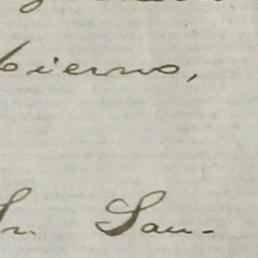 bierno,
Sr. San-